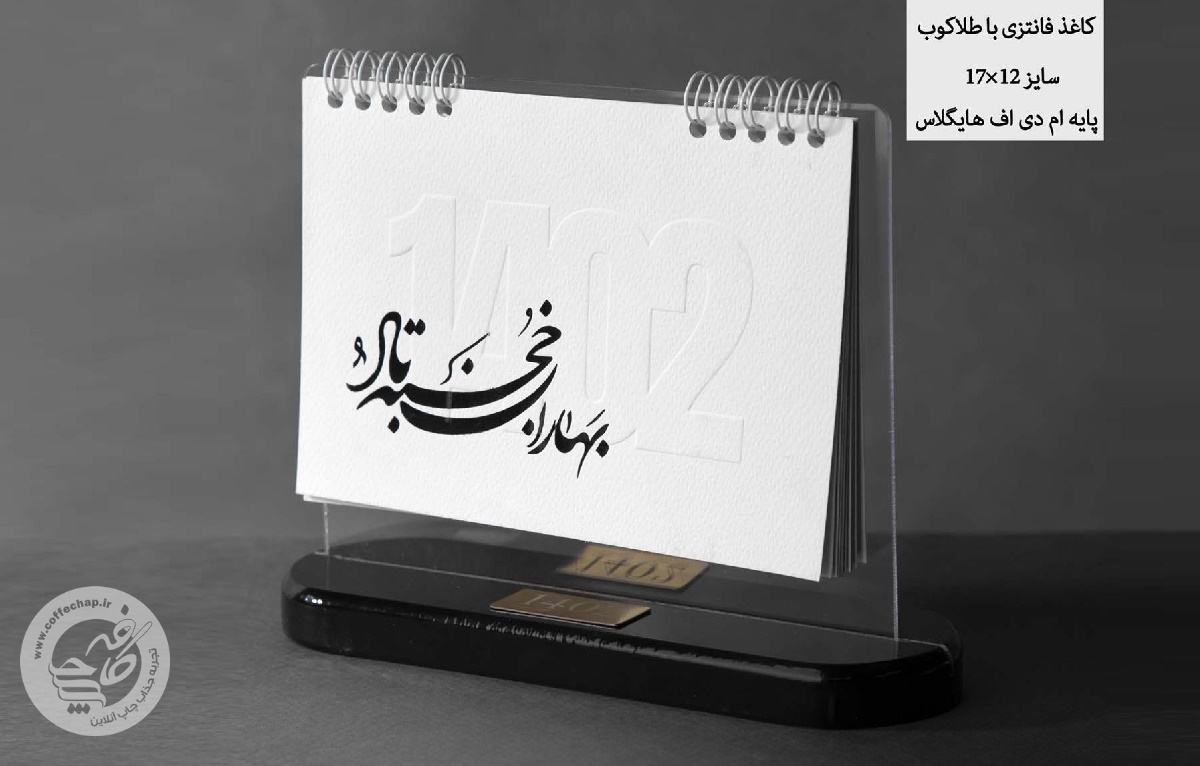 کاغذ فانتزی با طلاکوب
سایز 12×17
پایه ام دی اف هایگلاس
1402
بهاران خجسته باد
1402
www.coffechap.ir
کافه چاپ
تجربه جذاب چاپ آنلاین